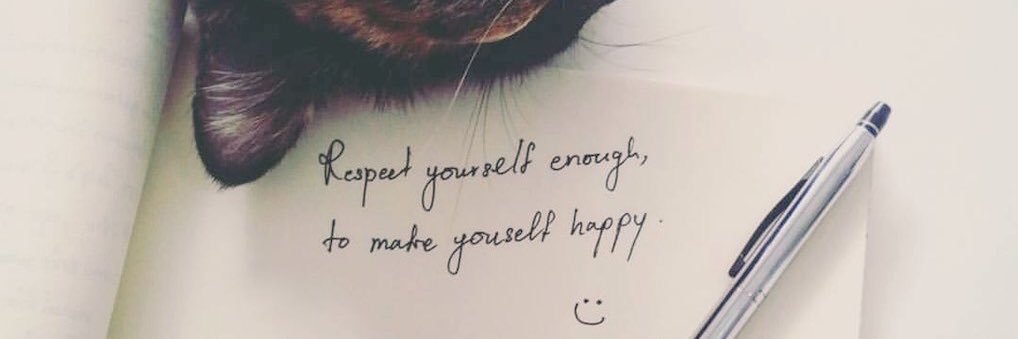 Respect yourself enough,
to make youself happy.